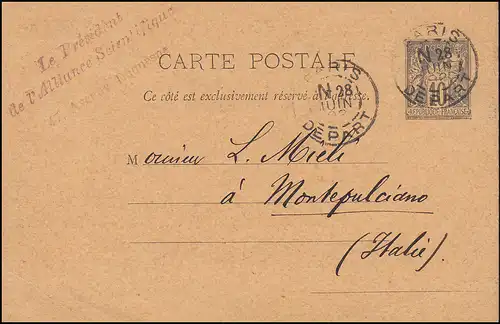 Le Président
de l'Alliance Scientifique
CARTE POSTALE
Ce côté est exclusivement réservé à l'adresse.
PARIS
28
JUIN
DÉPART
PARIS
28
JUIN
DÉPART
10
REPUBLIQUE FRANÇAISE
Monsieur L. Mieli
à Montepulciano
(Italie)